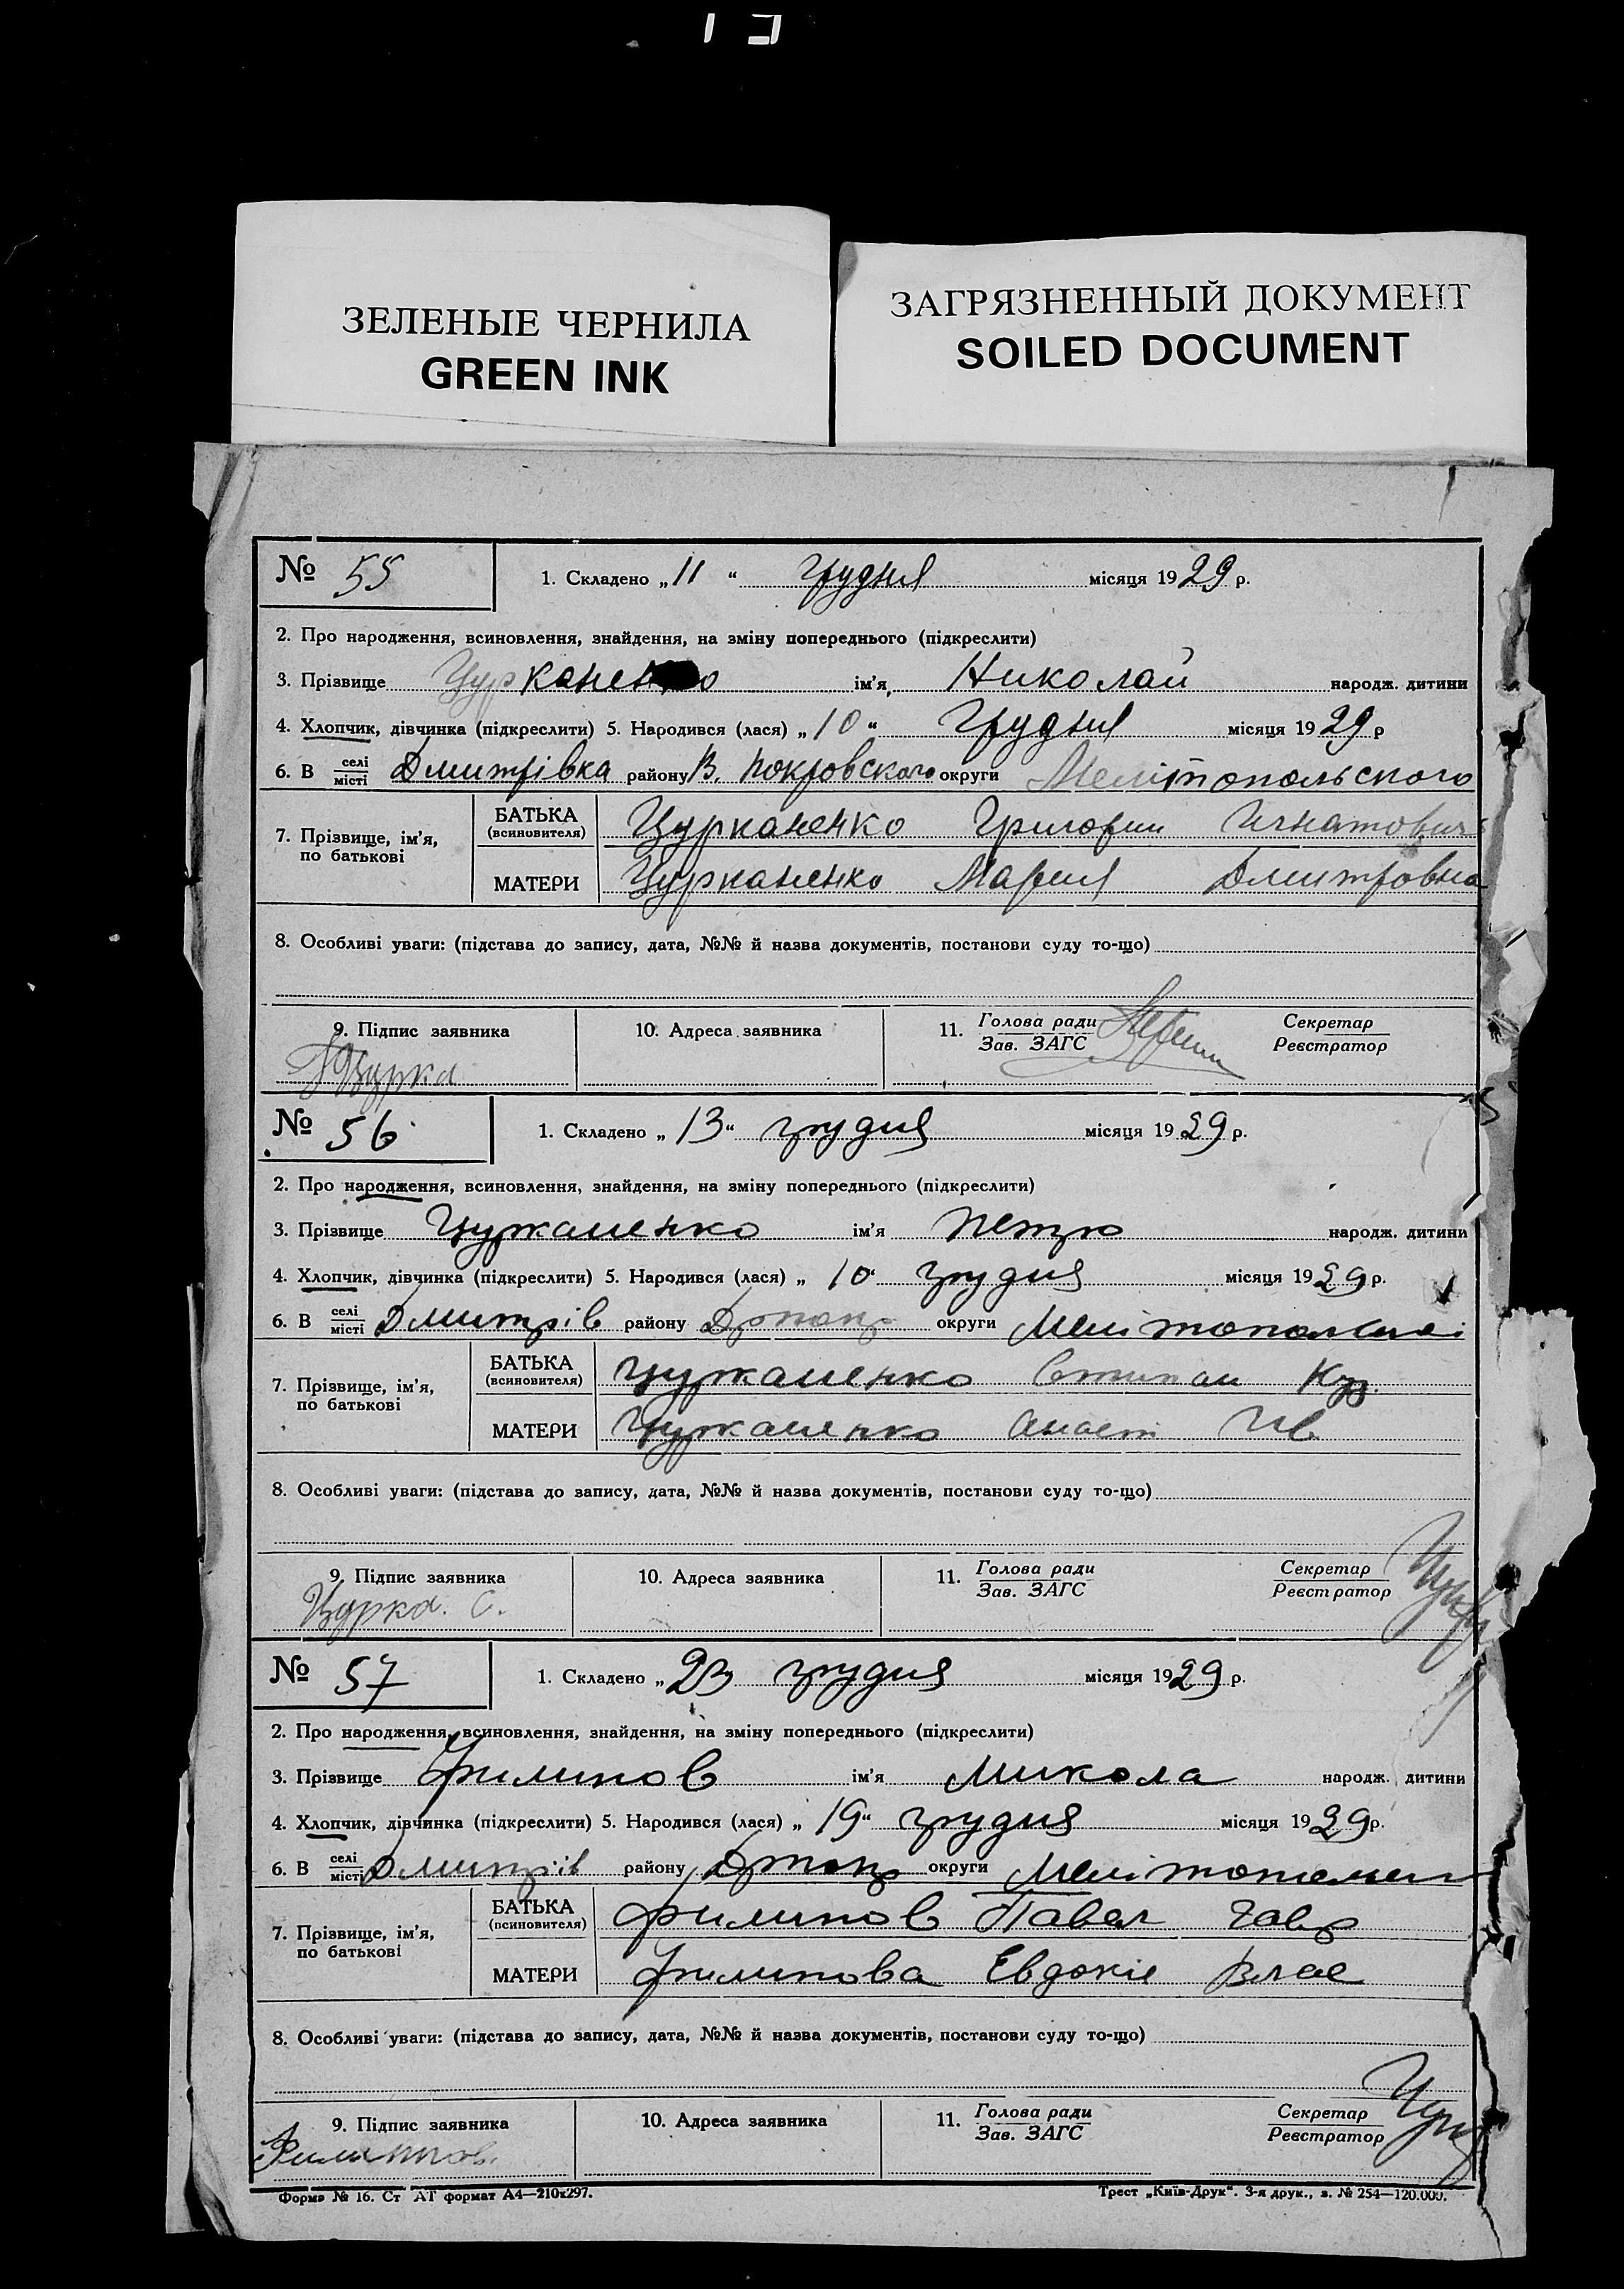 ЗЕЛЕНЫЕ ЧЕРНИЛА
GREEN INK
ЗАГРЯЗНЕННЫЙ ДОКУМЕНТ
SOILED DOCUMENT
№ 55 1. Складено „ 11 “ грудня місяця 1929 р.
2. Про народження, всиновлення, знайдення, на зміну попереднього (підкреслити)
3. Прізвище Цурканенко ім’я Николай народж. дитини
4. Хлопчик, дівчинка (підкреслити) 5. Народився (лася) „ 10 “ Грудня місяця 1929 р
6. В селі місті Дмитрівка району В. Покровского округи Мелітопольского
7. Прізвище, ім’я, по батькові
БАТЬКА (всиновителя) Цурканенко Григории Игнатович
МАТЕРИ Цурканенко Мария Дмитровна
8. Особливі уваги: (підстава до запису, дата, №№ й назва документів, постанови суду то-що)
9. Підпис заявника 10. Адреса заявника 11. Голова ради Зав. ЗАГС Секретар Реєстратор
Цурка
№ 56 1. Складено „ 13 “ грудня місяця 1929 р.
2. Про народження, всиновлення, знайдення, на зміну попереднього (підкреслити)
3. Прізвище Цурканенко ім’я Петро народж. дитини
4. Хлопчик, дівчинка (підкреслити) 5. Народився (лася) „ 10 “ грудня місяця 1929 р.
6. В селі місті Дмитрів району округи
7. Прізвище, ім’я, по батькові
БАТЬКА (всиновителя) Цурканенко Степан Куз.
МАТЕРИ Цурканенко Анаст Ив
8. Особливі уваги: (підстава до запису, дата, №№ й назва документів, постанови суду то-що)
9. Підпис заявника 10. Адреса заявника 11. Голова ради Зав. ЗАГС Секретар Реєстратор
Цурка. С.
№ 57 1. Складено „ 23 грудня місяця 1929 р.
2. Про народження, всиновлення, знайдення, на зміну попереднього (підкреслити)
3. Прізвище Филипов ім’я Микола народж. дитини
4. Хлопчик, дівчинка (підкреслити) 5. Народився (лася) „ 19 “ грудня місяця 1929 р.
6. В селі місті Дмитрів району округи
7. Прізвище, ім’я, по батькові
БАТЬКА (всиновителя) Филипов Павел Гавр
МАТЕРИ Филипова Евдокія Влас
8. Особливі уваги: (підстава до запису, дата, №№ й назва документів, постанови суду то-що)
9. Підпис заявника 10. Адреса заявника 11. Голова ради Зав. ЗАГС Секретар Реєстратор
Филиппов.
Форма № 16. Ст АТ формат А4—210х297. Трест „Київ-Друк“. 3-я друк., з. № 254—120.000.